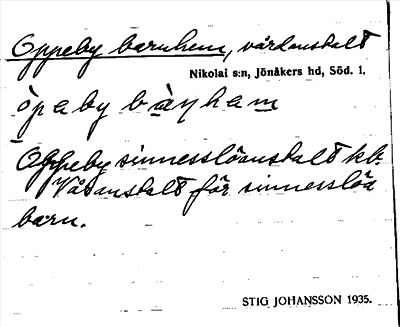 Oppeby barnhem, vårdanstalt
Nikolai s:n, Jönåkers hd, Söd. 1.
ò̀paby bàɳham
Oppeby sinnesslöanstalt kb.
Vårdanstalt för sinnesslöa
barn.
STIG JOHANSSON 1935.